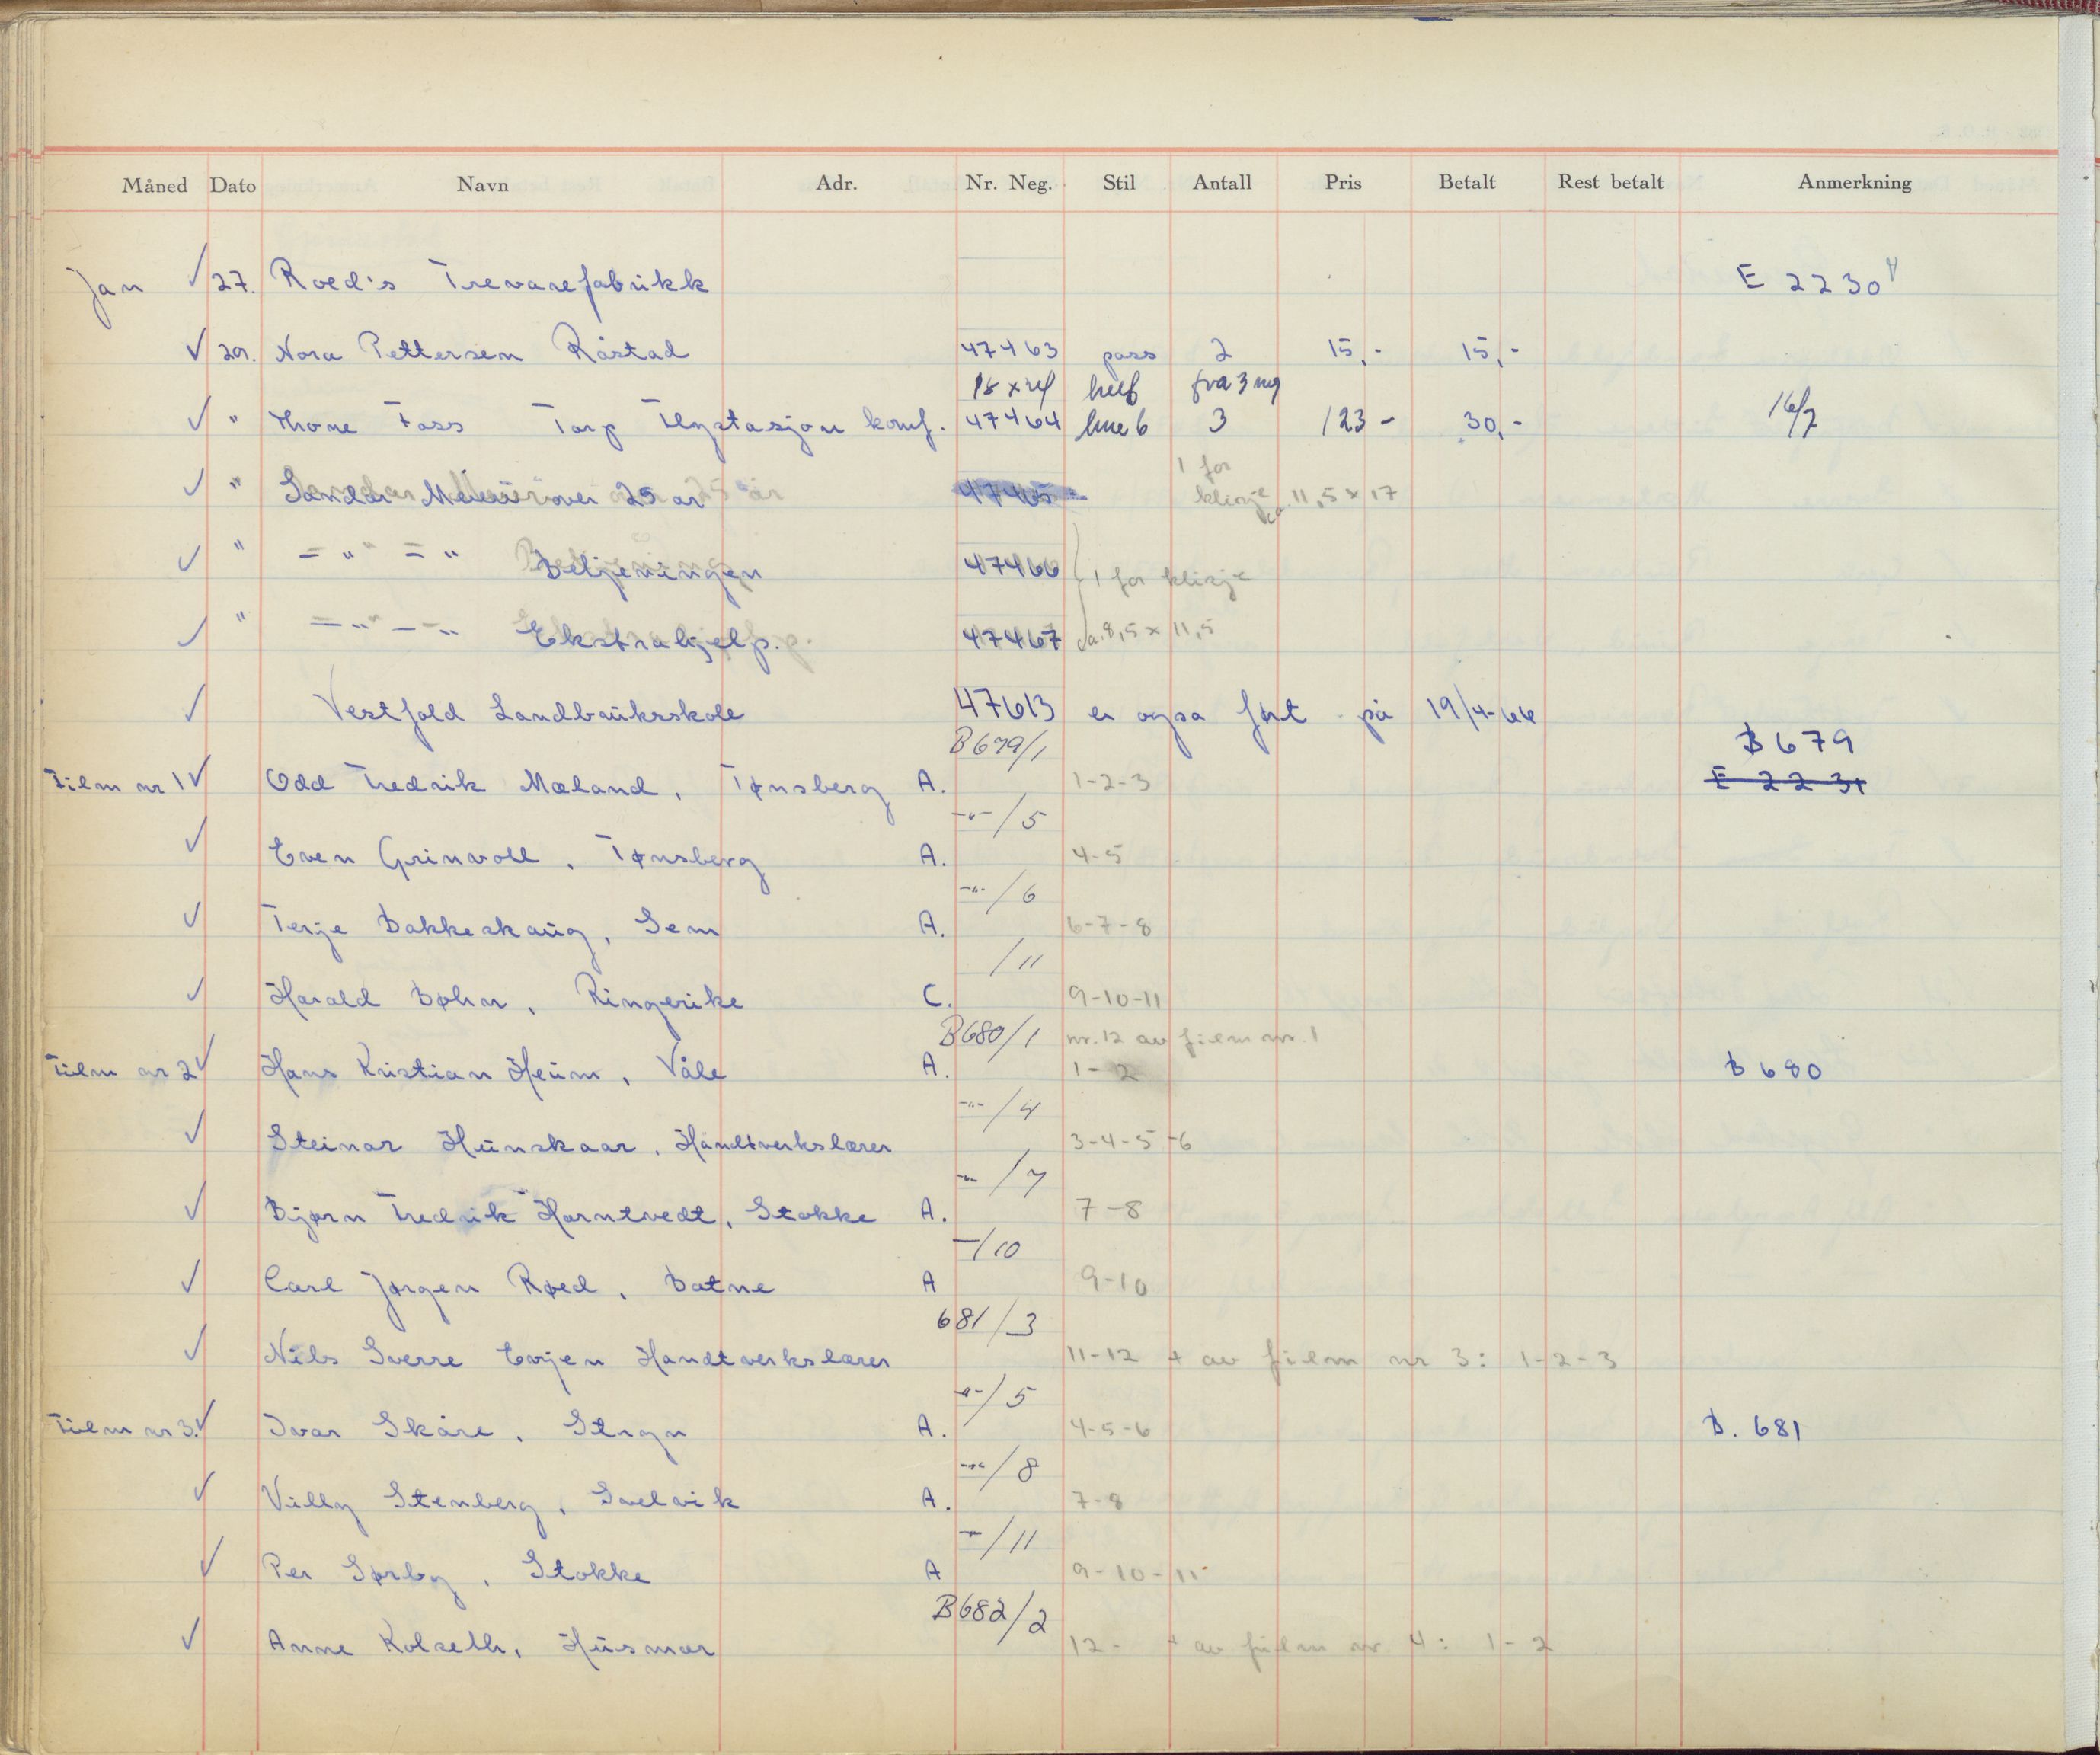 Måned Dato Navn Adr. Nr. Neg. Stil Antall Pris Betalt Rest betalt Anmerkning
Jan ✓ 27. Roed's Trevarefabrikk E 2230
✓ 29. Nora Pettersen Råstad 47463 pass 2 15,- 15,-
18 x 24 fra 3 neg
✓ " Thone Foss Torp Flystasjon konf. 47464 6 3 123- 30,- 16/7
1 for
✓ " Sandar Meieri over 25 år 47465 klisje ca. 11,5 x 17
✓ " = " = " Betjeningen 47466 1 for klisje
✓ " = " — " Ekstrahjelp. 47467 ca. 8,5 x 11,5
✓ Vestfold Landbruksskole 47613 er også ført på 19/4-66
B679/1 B 679
Film nr 1 ✓ Odd Fredrik Mæland, Tønsberg A. 1-2-3 E 2231
-"-/5
✓ Even Grinvoll, Tønsberg A. 4-5
-"-/6
✓ Terje Bakkeskaug, Sem A. 6-7-8
/11
✓ Harald Bøhn, Ringerike C. 9-10-11
B680/1 nr. 12 av film nr. 1
Film nr 2 ✓ Hans Kristian Heum, Våle A. 1-2 B 680
-"-/4
✓ Steinar Hunskaar, Håndtverkslærer 3-4-5-6
-"-/7
✓ Bjørn Fredrik Horntvedt, Stokke A. 7-8
-/10
✓ Carl Jørgen Røed, Botne A 9-10
681/3
✓ Nils Sverre Evjen Håndtverkslærer 11-12 + av film nr 3: 1-2-3
-"-/5
Film nr 3. ✓ Ivar Skåre, Stryn A. 4-5-6 B. 681
-"-/8
✓ Villy Stenberg, Svelvik A. 7-8
-"-/11
✓ Per Sørby, Stokke A 9-10-11
B682/2
✓ Anne Kolseth, Husmor 12- + av film nr. 4: 1-2